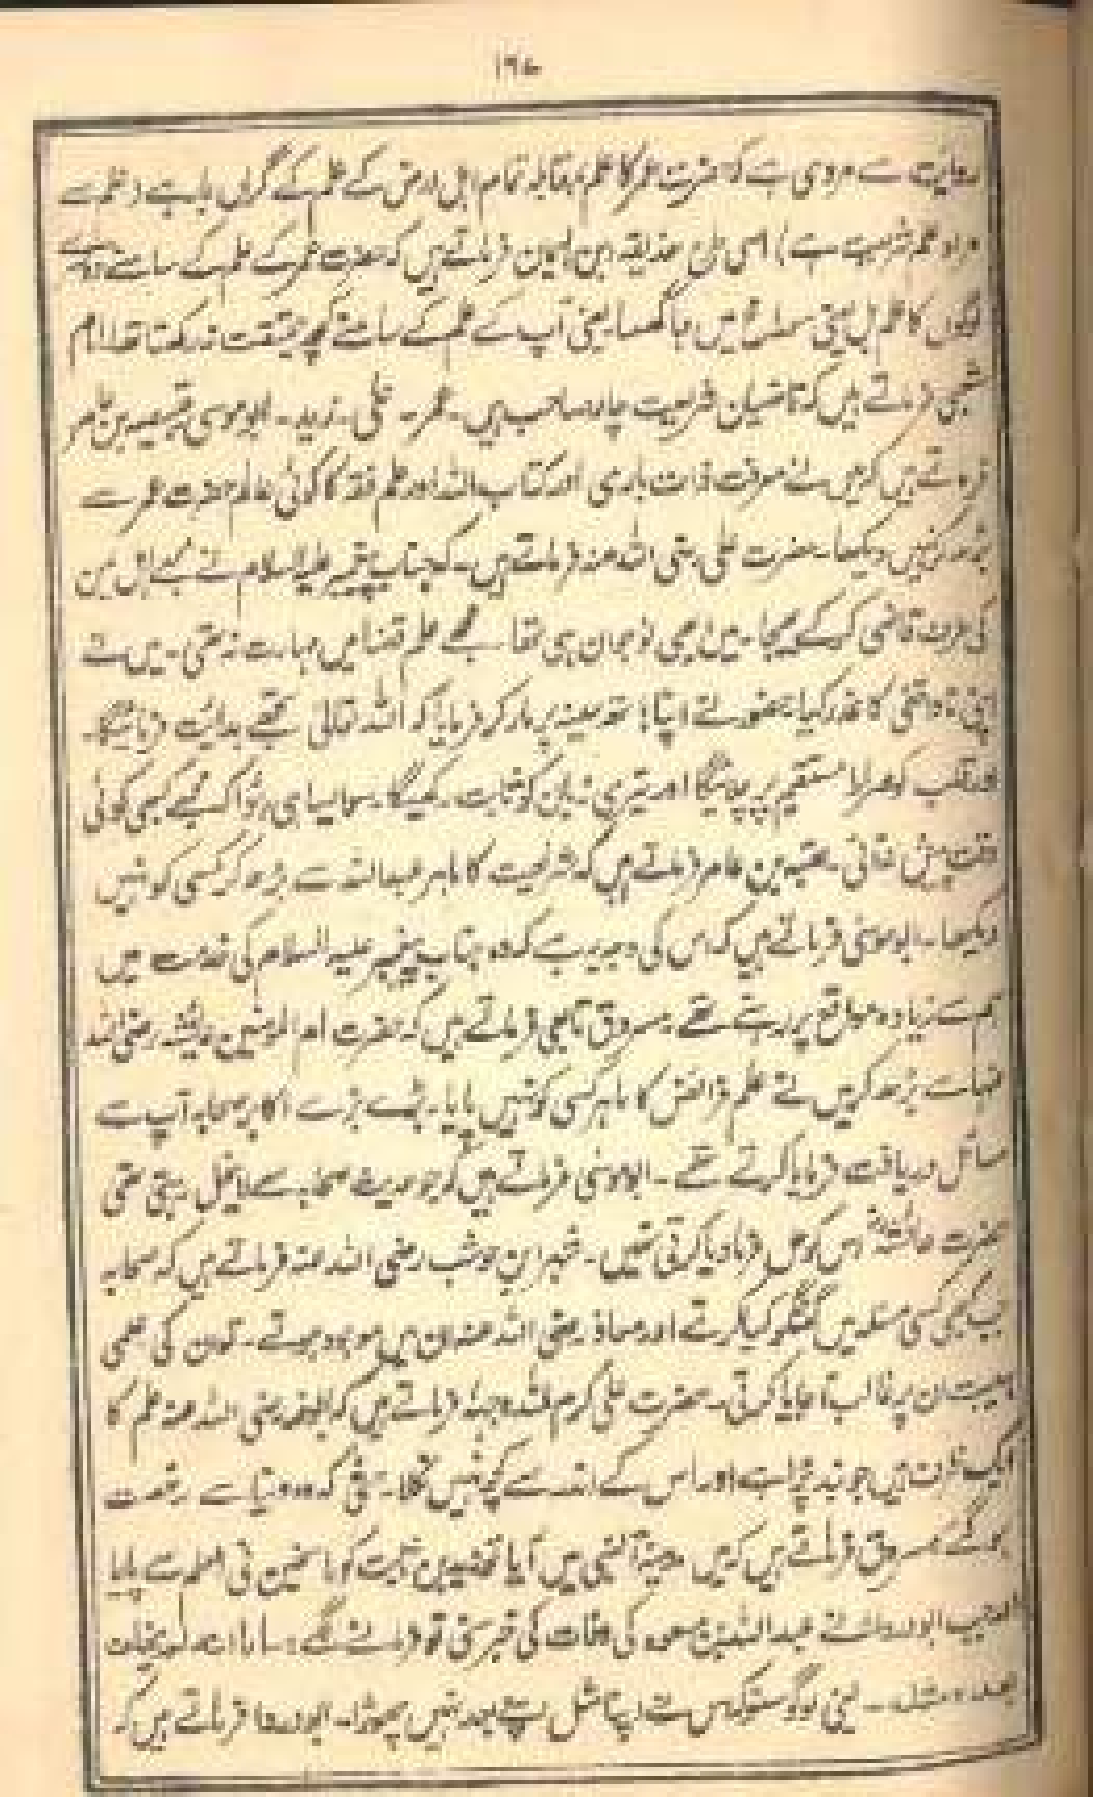 ۱۶۷
روایت سے مروی ہے کہ حضرت عمر کا علم بمقابلہ تمام اہل ارض کے علم کے گراں بار ہے (علم سے
مراد علم شریعت ہے) اسی طرح حذیفہ ابن الیمان فرماتے ہیں کہ حضرت عمر کے علم کے سامنے
لوگوں کا علم میں جا گھسا یعنی آپ کے علم کے سامنے کچھ حقیقت نہ رکھتا تھا امام
شعبی فرماتے ہیں کہ قاضیان شریعت چار صاحب ہیں۔ عمر۔ علی۔ زید۔ ابو موسی قبیصہ بن جابر
فرماتے ہیں کہ میں نے معرفت ذات باری اور کتاب اللہ اور علم فقہ کا کوئی عالم حضرت عمر سے
بڑھ کر نہیں دیکھا۔ حضرت علی رضی اللہ عنہ فرماتے ہیں۔ کہ جناب پیغمبر علیہ السلام نے مجھے اہل یمن
کی طرف قاضی کر کے بھیجا۔ میں ابھی نوجوان ہی تھا۔ مجھے علم قضا میں مہارت نہ تھی۔ میں نے
اپنی ناواقفی کا عذر کیا حضور نے اپنا ہاتھ سینہ پر مار کر فرمایا کہ اللہ تعالیٰ تجھے ہدایت فرمائیگا۔
اور قلب کو صراط مستقیم پر چلائیگا اور تیری زبان کو ثابت رکھیگا۔ سو ایسا ہی ہوا کہ مجھے کبھی کوئی
دقت پیش نہ آئی۔ عقبہ بن عامر فرماتے ہیں کہ شریعت کا ماہر عبداللہ سے بڑھ کر کسی کو نہیں
دیکھا۔ ابو موسیٰ فرماتے ہیں کہ اس کی وجہ یہ ہے کہ وہ جناب پیغمبر علیہ السلام کی خدمت میں
ہم سے زیادہ مواقع پر رہتے تھے۔ مسروق تابعی فرماتے ہیں کہ حضرت ام المومنین عائشہ رضی اللہ
عنہا سے بڑھ کر میں نے علم فرائض کا ماہر کسی کو نہیں پایا۔ بڑے بڑے اکابر صحابہ آپ سے
مسائل دریافت فرمایا کرتے تھے۔ ابو موسیٰ فرماتے ہیں کہ جو حدیث صحابہ سے لاینحل رہتی تھی
حضرت عائشہؓ اس کو حل فرما دیا کرتی تھیں۔ شہر ابن حوشب رضی اللہ عنہ فرماتے ہیں کہ صحابہ
جب کبھی کسی مسئلہ میں گفتگو کیا کرتے اور معاذ رضی اللہ عنہ ان میں موجود ہوتے۔ تو ان کی علمی
ہیبت ان پر غالب آ جایا کرتی۔ حضرت علی کرم اللہ وجہہ فرماتے ہیں کہ ابوذر رضی اللہ عنہ علم کا
ایک ظرف ہیں جو بند پڑا ہے اور اس کے اندر سے کچھ نہیں نکلا۔ حتی کہ وہ دنیا سے رخصت
ہو گئے مسروق فرماتے ہیں کہ میں مدینۃ النبی میں آیا تو زید بن ثابت کو راسخین فی العلم سے پایا
اور جب ابو درداء نے عبد اللہ بن مسعود کی وفات کی خبر سنی تو فرمانے لگے:۔
بعدہ مثلہ۔ یعنی لوگو سنو کہ اس نے اپنا مثل اپنے بعد نہیں چھوڑا۔ ابو دردا فرماتے ہیں کہ